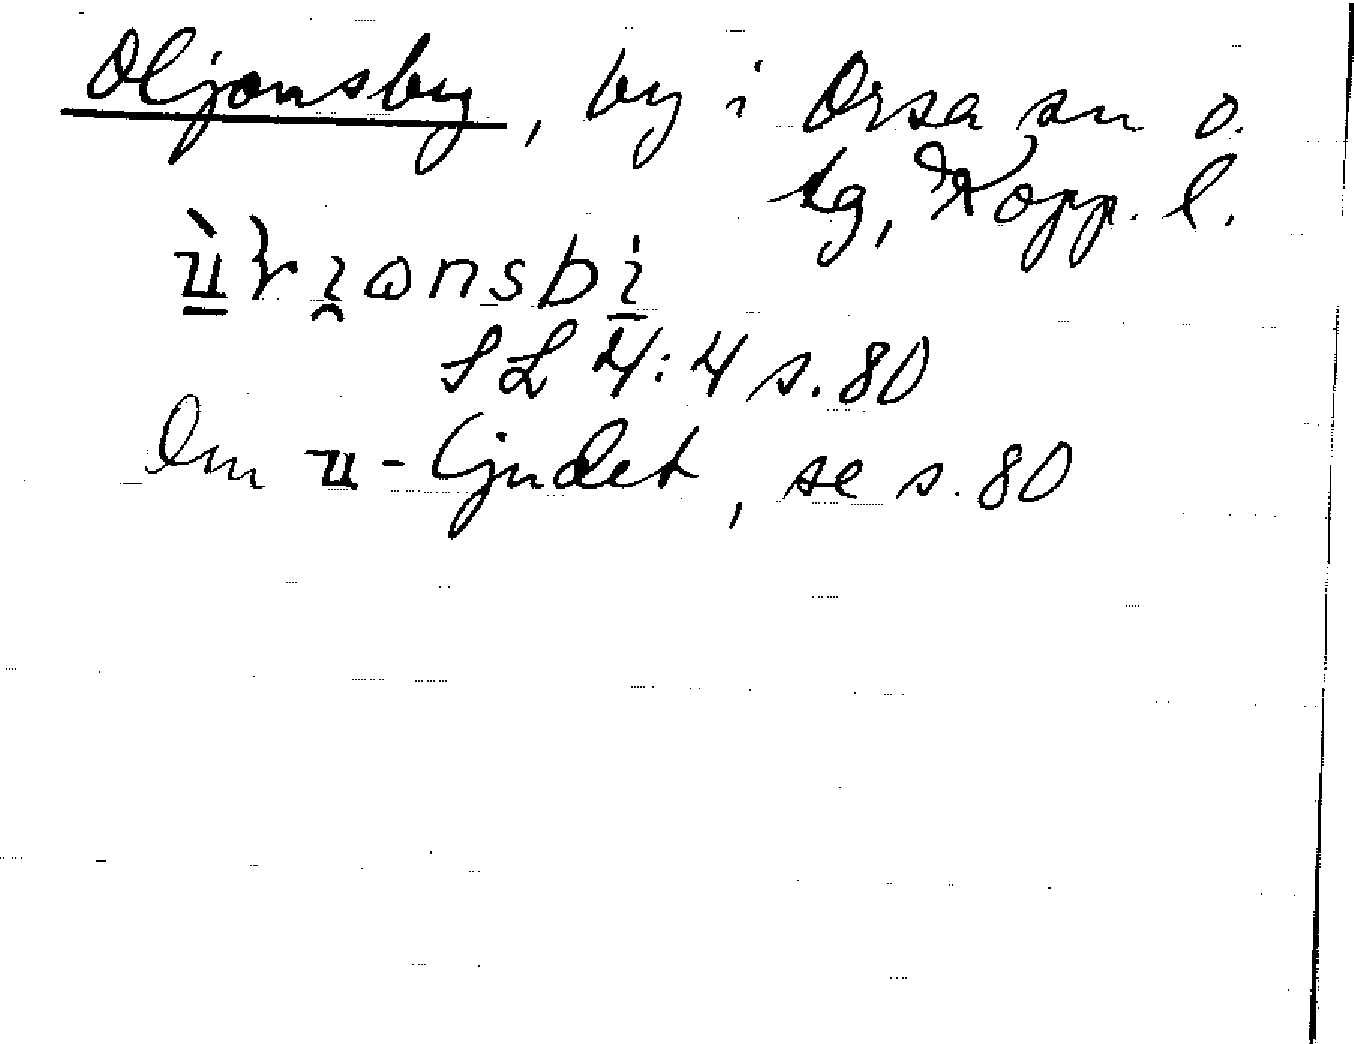 Oljonsby, by i Orsa sn o.
tg, Kopp. l.
SL 4:4 s. 80
Om u-ljudet, se s. 80